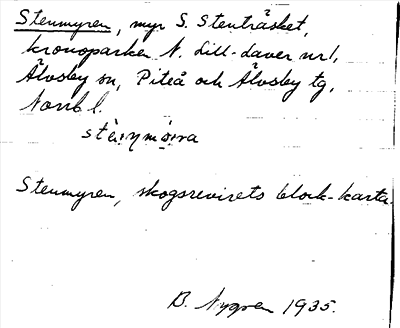 Stenmyren, myr S. Stenträsket,
kronoparken N. Lill-daver nr 1,
Älvsby sn, Piteå och Älvsby tg,
Norrb l.
Stenmyren, skogsrevirets block-karta.
B. Nygren 1935.